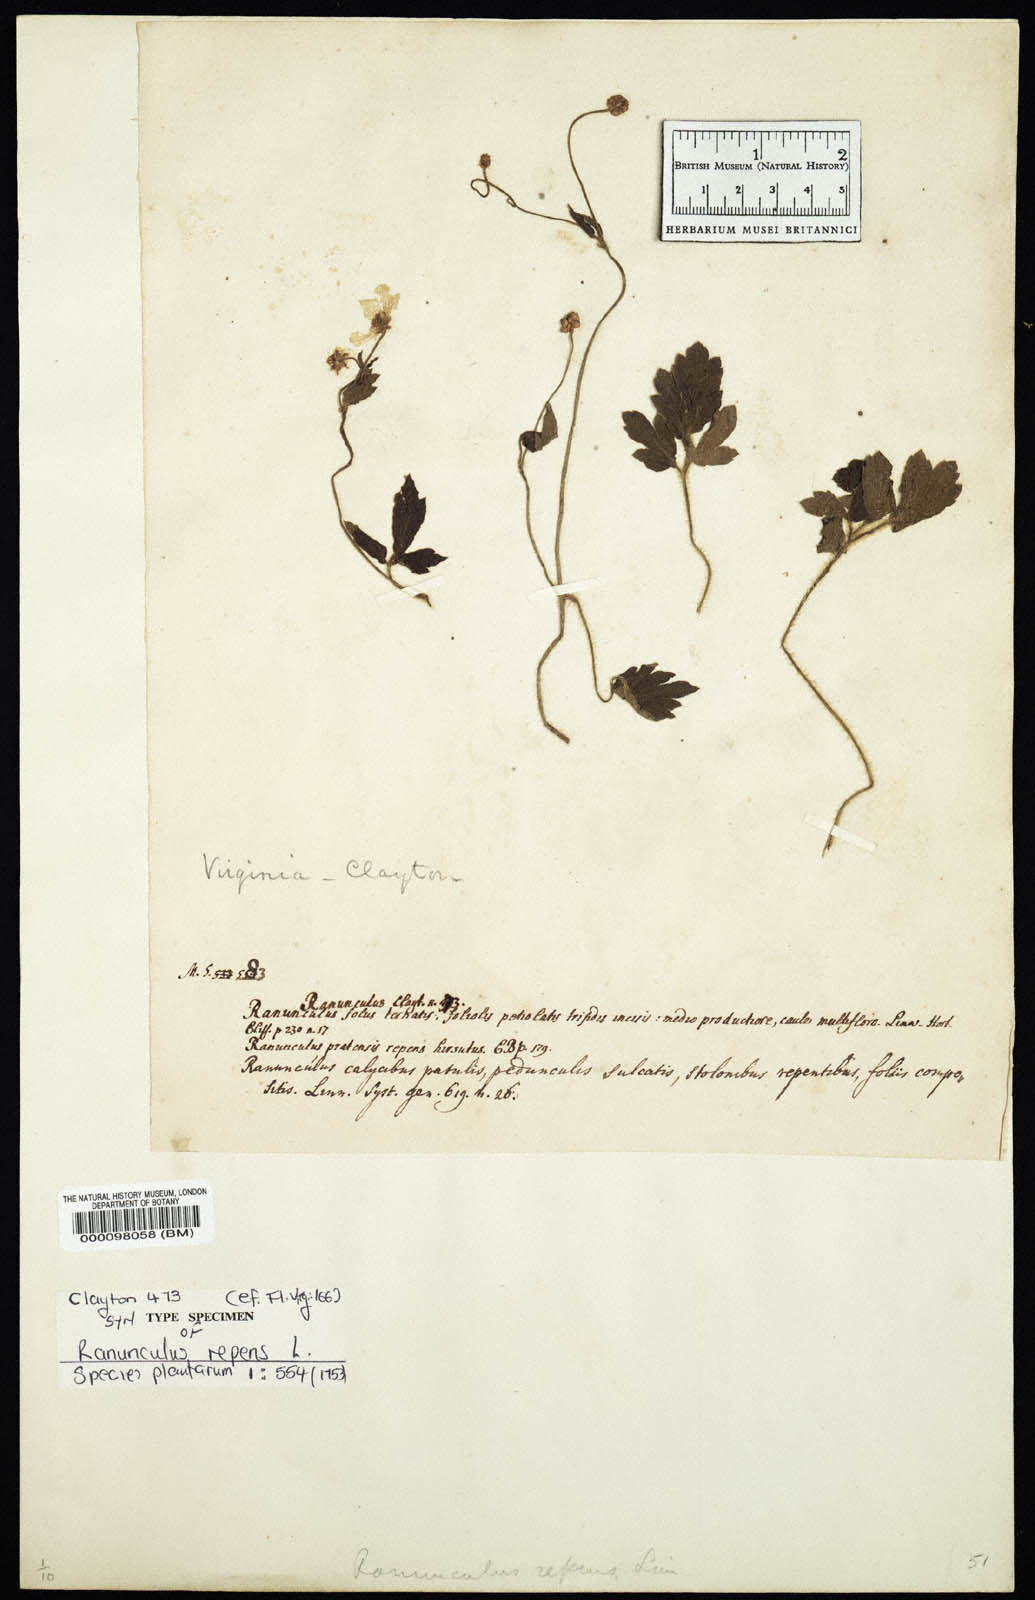 1 2
BRITISH MUSEUM (NATURAL HISTORY)
1 2 3 4 5
HERBARIUM MUSEI BRITANNICI
Virginia - Clayton
Ranunculus Clayt. n. 473.
Ranunculus foliis ternatis: foliolis petiolatis trifidis incisis: medio productiore, caule multifloro. Linn. Hort.
Cliff. p 230 n. 17
Ranunculus pratensis repens hirsutus. C.B.p. 179.
Ranunculus calycibus patulis, pedunculis sulcatis, stolonibus repentibus, foliis compo,
sitis. Linn. Syst. gen. 619. n. 26.
THE NATURAL HISTORY MUSEUM, LONDON
DEPARTMENT OF BOTANY
000098058 (BM)
Clayton 473 (cf. Fl. Virg: 166)
SYN TYPE SPECIMEN
OF
Ranunculus repens L.
Species plantarum 1: 554 (1753)
1/10
Ranunculus repens Linn
51